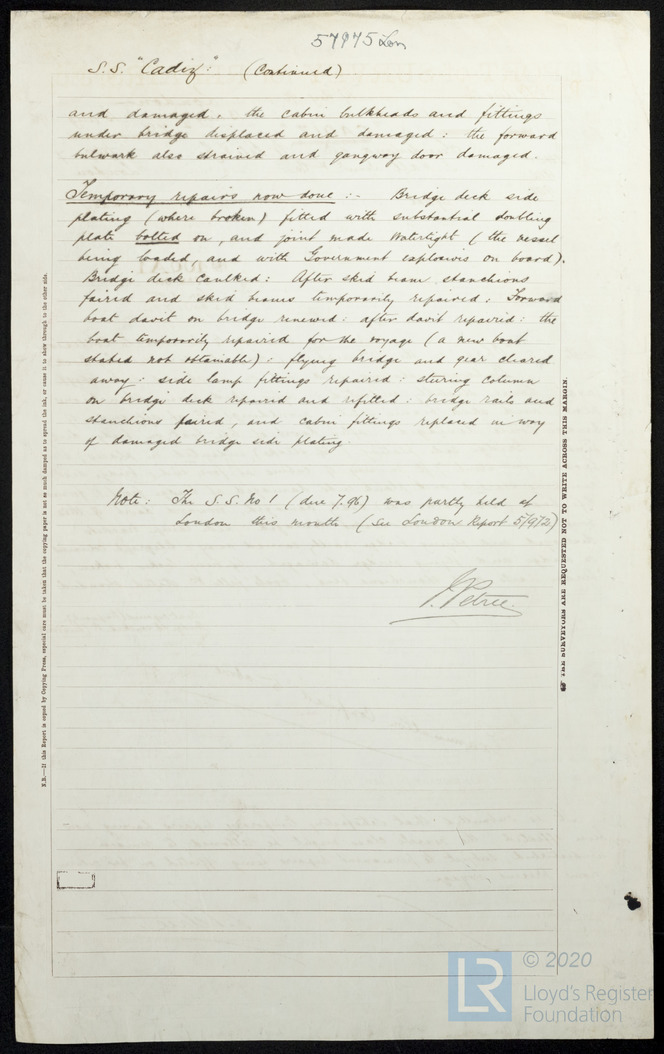 57975 Lon
S.S. "Cadiz" (Continued)
and damaged: the cabin bulkheads and fittings
under bridge displaced and damaged: the forward
bulwark also strained and gangway door damaged.
Temporary repairs now done :- Bridge deck side
plating (where broken) fitted with substantial doubling
plate bolted on, and joint made Watertight (the vessel
being loaded, and with Government explosives on board).
Bridge deck caulked: After skid beam stanchions
faired and skid beams temporarily repaired: Forward
boat davit on bridge renewed: after davit repaired: the
boat temporarily repaired for the voyage (a new boat
stated not obtainable): flying bridge and gear cleared
away: side lamp fittings repaired: steering column
on bridge deck repaired and refitted: bridge rails and
stanchions faired, and cabin fittings replaced in way
of damaged bridge side plating.
Note: The S.S. No 1 (due 7.96) was partly held at
London this month (See London Report 57972)
J. Petrie.
N.B.—If this Report is copied by Copying Press, especial care must be taken that the copying paper is not so much damped as to spread the ink, or cause it to show through to the other side.
THE SURVEYORS ARE REQUESTED NOT TO WRITE ACROSS THIS MARGIN.
LR
© 2020
Lloyd's Register
Foundation